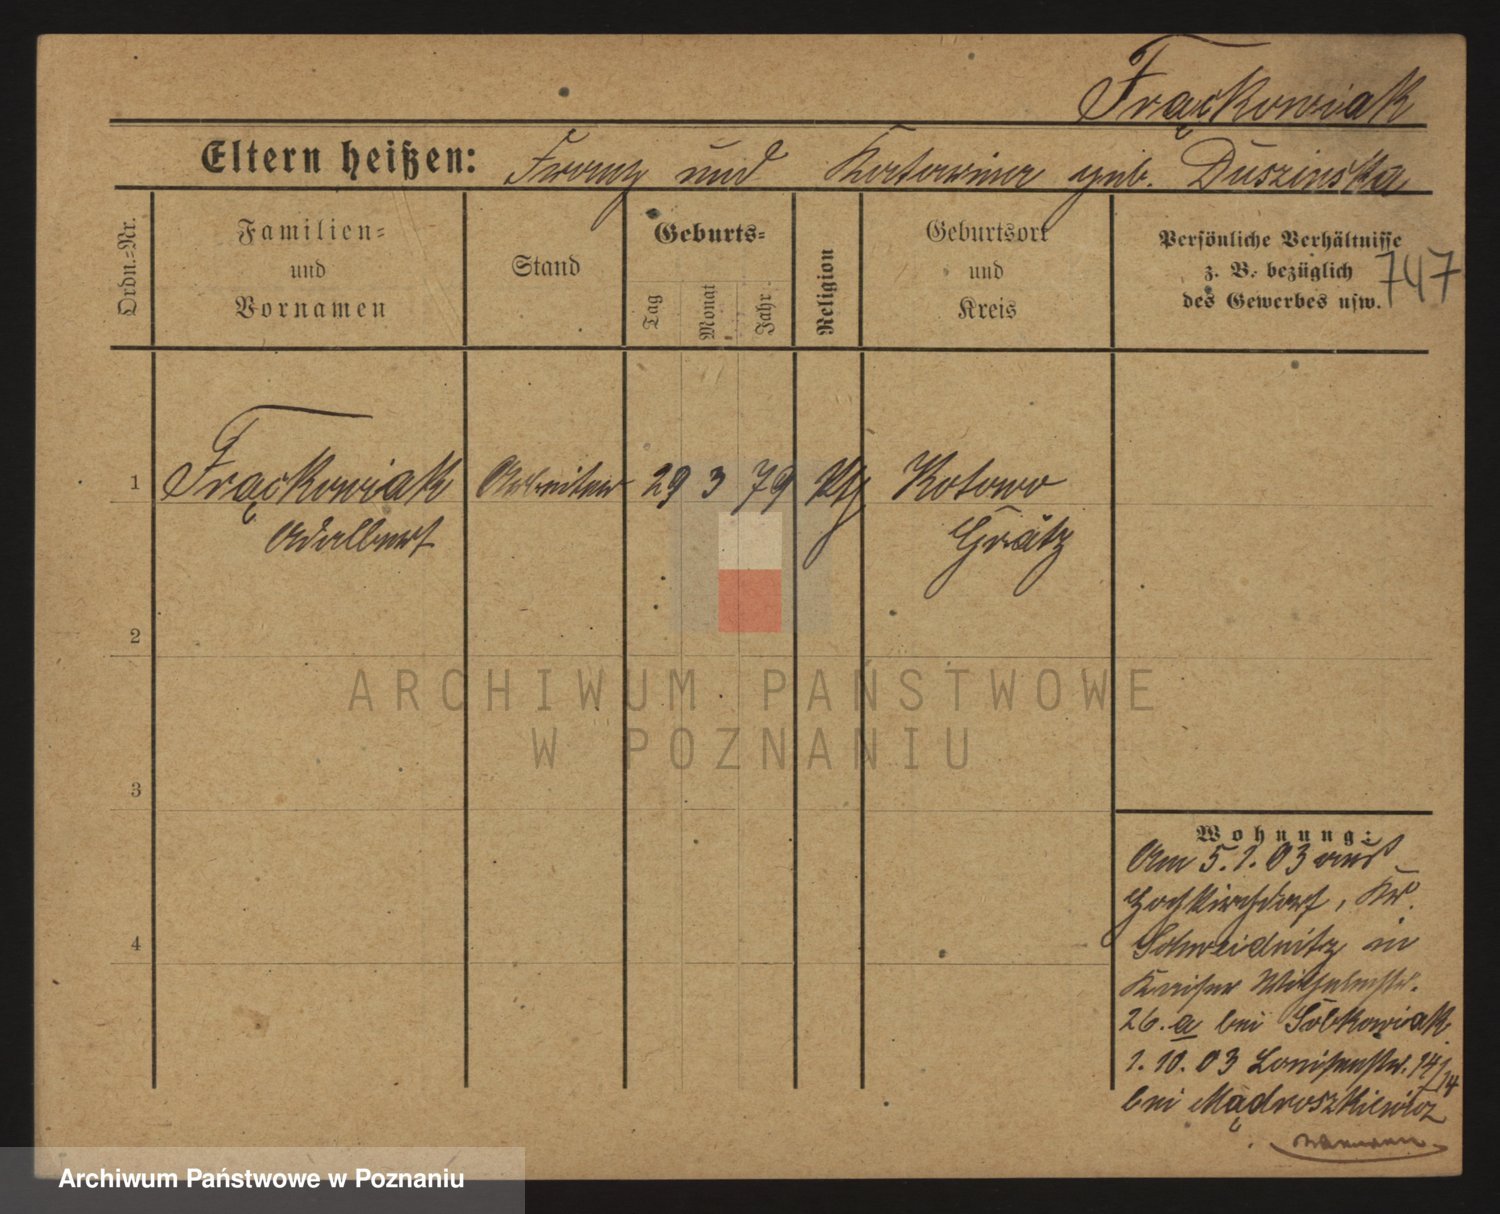 Frąckowiak
Eltern heißen: Franz und Katarina geb. Duszinska
Ordn.-Nr.
Familien-
und
Vornamen
Stand
Geburts-
Tag
Monat
Jahr
Religion
Geburtsort
und
Kreis
Persönliche Verhältnisse
z. B. bezüglich
des Gewerbes usw.
747
1 Frąckowiak Arbeiter 29 3 79 Kotowo
Adalbert Grätz
2
3
4
ARCHIWUM PAŃSTWOWE
W POZNANIU
Wohnung:
Am 5.1.03 aus
Hochkirchdorf, Kr.
Schweidnitz in
Kaiser Wilhelmstr.
26.a bei Sobkowiak
1.10.03 Louisenstr. 14/14
bei Mądroszkiewicz
Archiwum Państwowe w Poznaniu